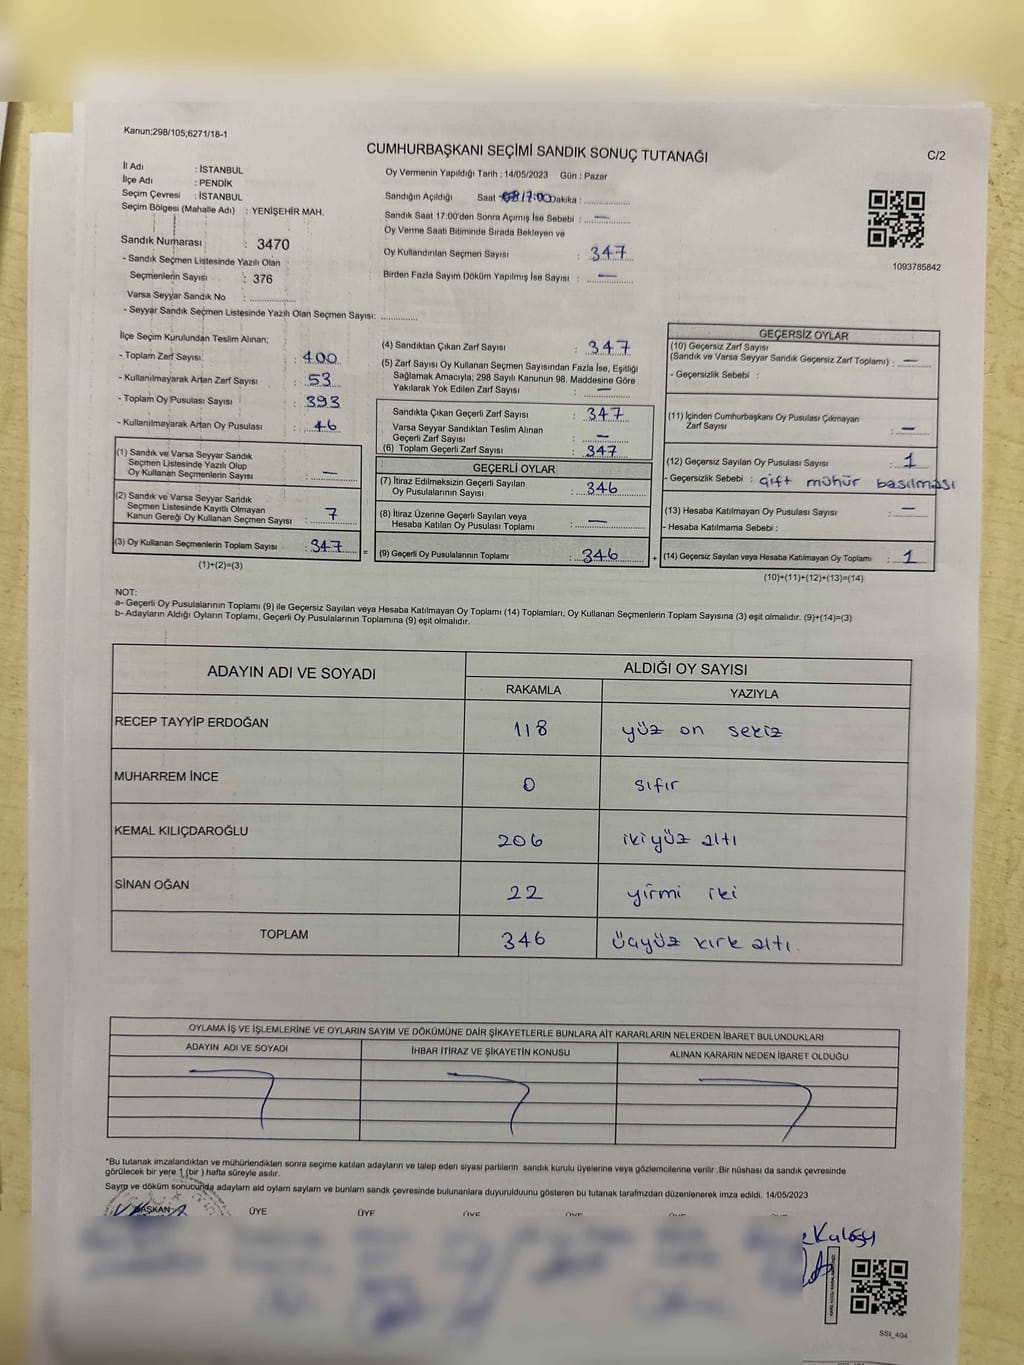 Kanun;298/105;6271/18-1
CUMHURBAŞKANI SEÇİMİ SANDIK SONUÇ TUTANAĞI
C/2
İl Adı : İSTANBUL
İlçe Adı : PENDİK
Seçim Çevresi : İSTANBUL
Seçim Bölgesi (Mahalle Adı) : YENİŞEHİR MAH.
Sandık Numarası : 3470
- Sandık Seçmen Listesinde Yazılı Olan
Seçmenlerin Sayısı : 376
Varsa Seyyar Sandık No : ..............
- Seyyar Sandık Seçmen Listesinde Yazılı Olan Seçmen Sayısı: ............
Oy Vermenin Yapıldığı Tarih : 14/05/2023 Gün : Pazar
Sandığın Açıldığı Saat 17:00 Dakika : ..............
Sandık Saat 17:00'den Sonra Açımış İse Sebebi : —
Oy Verme Saati Bitiminde Sırada Bekleyen ve
Oy Kullandırılan Seçmen Sayısı : 347
Birden Fazla Sayım Döküm Yapılmış İse Sayısı : —
1093785842
İlçe Seçim Kurulundan Teslim Alınan;
- Toplam Zarf Sayısı : 400
- Kullanılmayarak Artan Zarf Sayısı : 53
- Toplam Oy Pusulası Sayısı : 393
- Kullanılmayarak Artan Oy Pusulası : 46
(1) Sandık ve Varsa Seyyar Sandık
Seçmen Listesinde Yazılı Olup
Oy Kullanan Seçmenlerin Sayısı : —
(2) Sandık ve Varsa Seyyar Sandık
Seçmen Listesinde Kayıtlı Olmayan
Kanun Gereği Oy Kullanan Seçmen Sayısı : 7
(3) Oy Kullanan Seçmenlerin Toplam Sayısı : 347 =
(1)+(2)=(3)
(4) Sandıktan Çıkan Zarf Sayısı : 347
(5) Zarf Sayısı Oy Kullanan Seçmen Sayısından Fazla İse, Eşitliği
Sağlamak Amacıyla; 298 Sayılı Kanunun 98. Maddesine Göre
Yakılarak Yok Edilen Zarf Sayısı : —
Sandıkta Çıkan Geçerli Zarf Sayısı : 347
Varsa Seyyar Sandıktan Teslim Alınan
Geçerli Zarf Sayısı : —
(6) Toplam Geçerli Zarf Sayısı : 347
GEÇERLİ OYLAR
(7) İtiraz Edilmeksizin Geçerli Sayılan
Oy Pusulalarının Sayısı : 346
(8) İtiraz Üzerine Geçerli Sayılan veya
Hesaba Katılan Oy Pusulası Toplamı : —
(9) Geçerli Oy Pusulalarının Toplamı : 346 +
GEÇERSİZ OYLAR
(10) Geçersiz Zarf Sayısı
(Sandık ve Varsa Seyyar Sandık Geçersiz Zarf Toplamı) : —
- Geçersizlik Sebebi :
(11) İçinden Cumhurbaşkanı Oy Pusulası Çıkmayan
Zarf Sayısı : —
(12) Geçersiz Sayılan Oy Pusulası Sayısı : 1
- Geçersizlik Sebebi : çift mühür basılması
(13) Hesaba Katılmayan Oy Pusulası Sayısı : —
- Hesaba Katılmama Sebebi :
(14) Geçersiz Sayılan veya Hesaba Katılmayan Oy Toplamı : 1
(10)+(11)+(12)+(13)=(14)
NOT:
a- Geçerli Oy Pusulalarının Toplamı (9) ile Geçersiz Sayılan veya Hesaba Katılmayan Oy Toplamı (14) Toplamları, Oy Kullanan Seçmenlerin Toplam Sayısına (3) eşit olmalıdır. (9)+(14)=(3)
b- Adayların Aldığı Oyların Toplamı, Geçerli Oy Pusulalarının Toplamına (9) eşit olmalıdır.
ADAYIN ADI VE SOYADI ALDIĞI OY SAYISI
RAKAMLA YAZIYLA
RECEP TAYYİP ERDOĞAN 118 yüz on sekiz
MUHARREM İNCE 0 sıfır
KEMAL KILIÇDAROĞLU 206 ikiyüz altı
SİNAN OĞAN 22 yirmi iki
TOPLAM 346 üçyüz kırk altı.
OYLAMA İŞ VE İŞLEMLERİNE VE OYLARIN SAYIM VE DÖKÜMÜNE DAİR ŞİKAYETLERLE BUNLARA AİT KARARLARIN NELERDEN İBARET BULUNDUKLARI
ADAYIN ADI VE SOYADI İHBAR İTİRAZ VE ŞİKAYETİN KONUSU ALINAN KARARIN NEDEN İBARET OLDUĞU
*Bu tutanak imzalandıktan ve mühürlendikten sonra seçime katılan adayların ve talep eden siyasi partilerin sandık kurulu üyelerine veya gözlemcilerine verilir .Bir nüshası da sandık çevresinde
görülecek bir yere 1 (bir ) hafta süreyle asılır.
Sayım ve döküm sonucunda adayların ald oyların sayların ve bunların sandk çevresinde bulunanlara duyurulduunu gösteren bu tutanak tarafmzdan düzenlenerek imza edildi. 14/05/2023
BAŞKAN ÜYE ÜYE ÜYE ÜYE
SSI_404